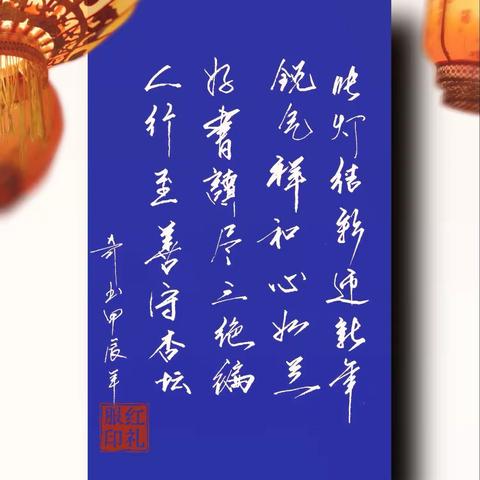 张灯结彩迎新年
锐气祥和心如兰
好書讀尽三绝编
人行至善守杏坛
甲辰年
红礼
服印